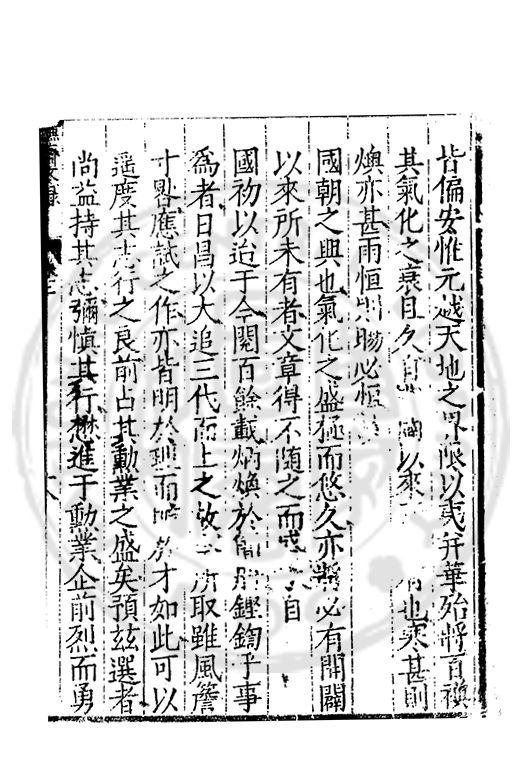 皆偏安惟元越天地之界限以夷弁華殆將百禩
其氣化之衰且久以來也寒甚則
燠亦甚雨恒則暘必恒
國朝之興也氣化之盛極而悠久亦將必有開闢
以來所未有者文章得不隨之而盛自
國初以迨于今閱百餘載炳煥於鏗鍧乎事
為者日昌以大追三代而上之故所取雖風簷
寸晷應試之作亦皆明於理而才如此可以
遥度其志行之良前占其勳業之盛矣預茲選者
尚益持其志彌慎其行懋進于勳業企前烈而勇